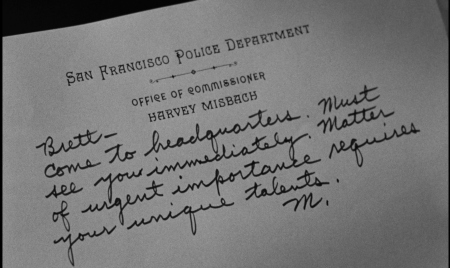 SAN FRANCISCO POLICE DEPARTMENT
OFFICE OF COMMISSIONER
HARVEY MISBACH
Brett—
Come to headquarters. Must
see you immediately. Matter
of urgent importance requires
your unique talents.
M.